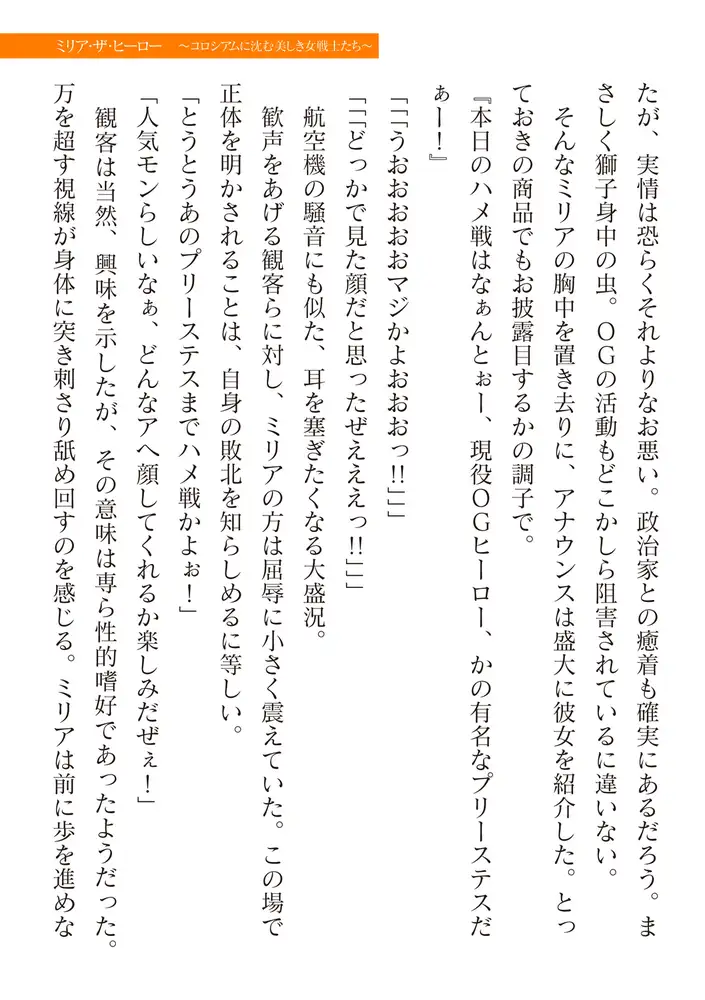 ミリア・ザ・ヒーロー　～コロシアムに沈む美しき女戦士たち～
たが、実情は恐らくそれよりなお悪い。政治家との癒着も確実にあるだろう。ま
さしく獅子身中の虫。ＯＧの活動もどこかしら阻害されているに違いない。
　そんなミリアの胸中を置き去りに、アナウンスは盛大に彼女を紹介した。とっ
ておきの商品でもお披露目するかの調子で。
『本日のハメ戦はなぁんとぉー、現役ＯＧヒーロー、かの有名なプリーステスだ
ぁー！』
「「「うおおおおおマジかよおおおっ!!」」」
「「「どっかで見た顔だと思ったぜえええっ!!」」」
　航空機の騒音にも似た、耳を塞ぎたくなる大盛況。
　歓声をあげる観客らに対し、ミリアの方は屈辱に小さく震えていた。この場で
正体を明かされることは、自身の敗北を知らしめるに等しい。
「とうとうあのプリーステスまでハメ戦かよぉ！」
「人気モンらしいなぁ、どんなアヘ顔してくれるか楽しみだぜぇ！」
　観客は当然、興味を示したが、その意味は専ら性的嗜好であったようだった。
万を超す視線が身体に突き刺さり舐め回すのを感じる。ミリアは前に歩を進めな